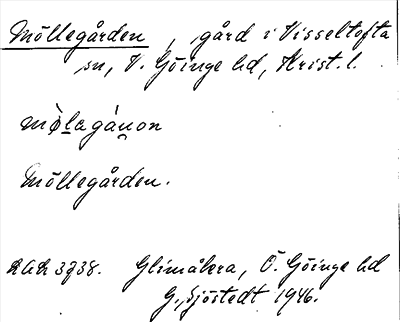 Möllegården, gård i Visseltofta
sn, V. Göinge hd, Krist. l.
mø̀lagá̱non
Möllegården.
RAÄ 3738. Glimåkra, Ö. Göinge hd
G. Sjöstedt 1946.